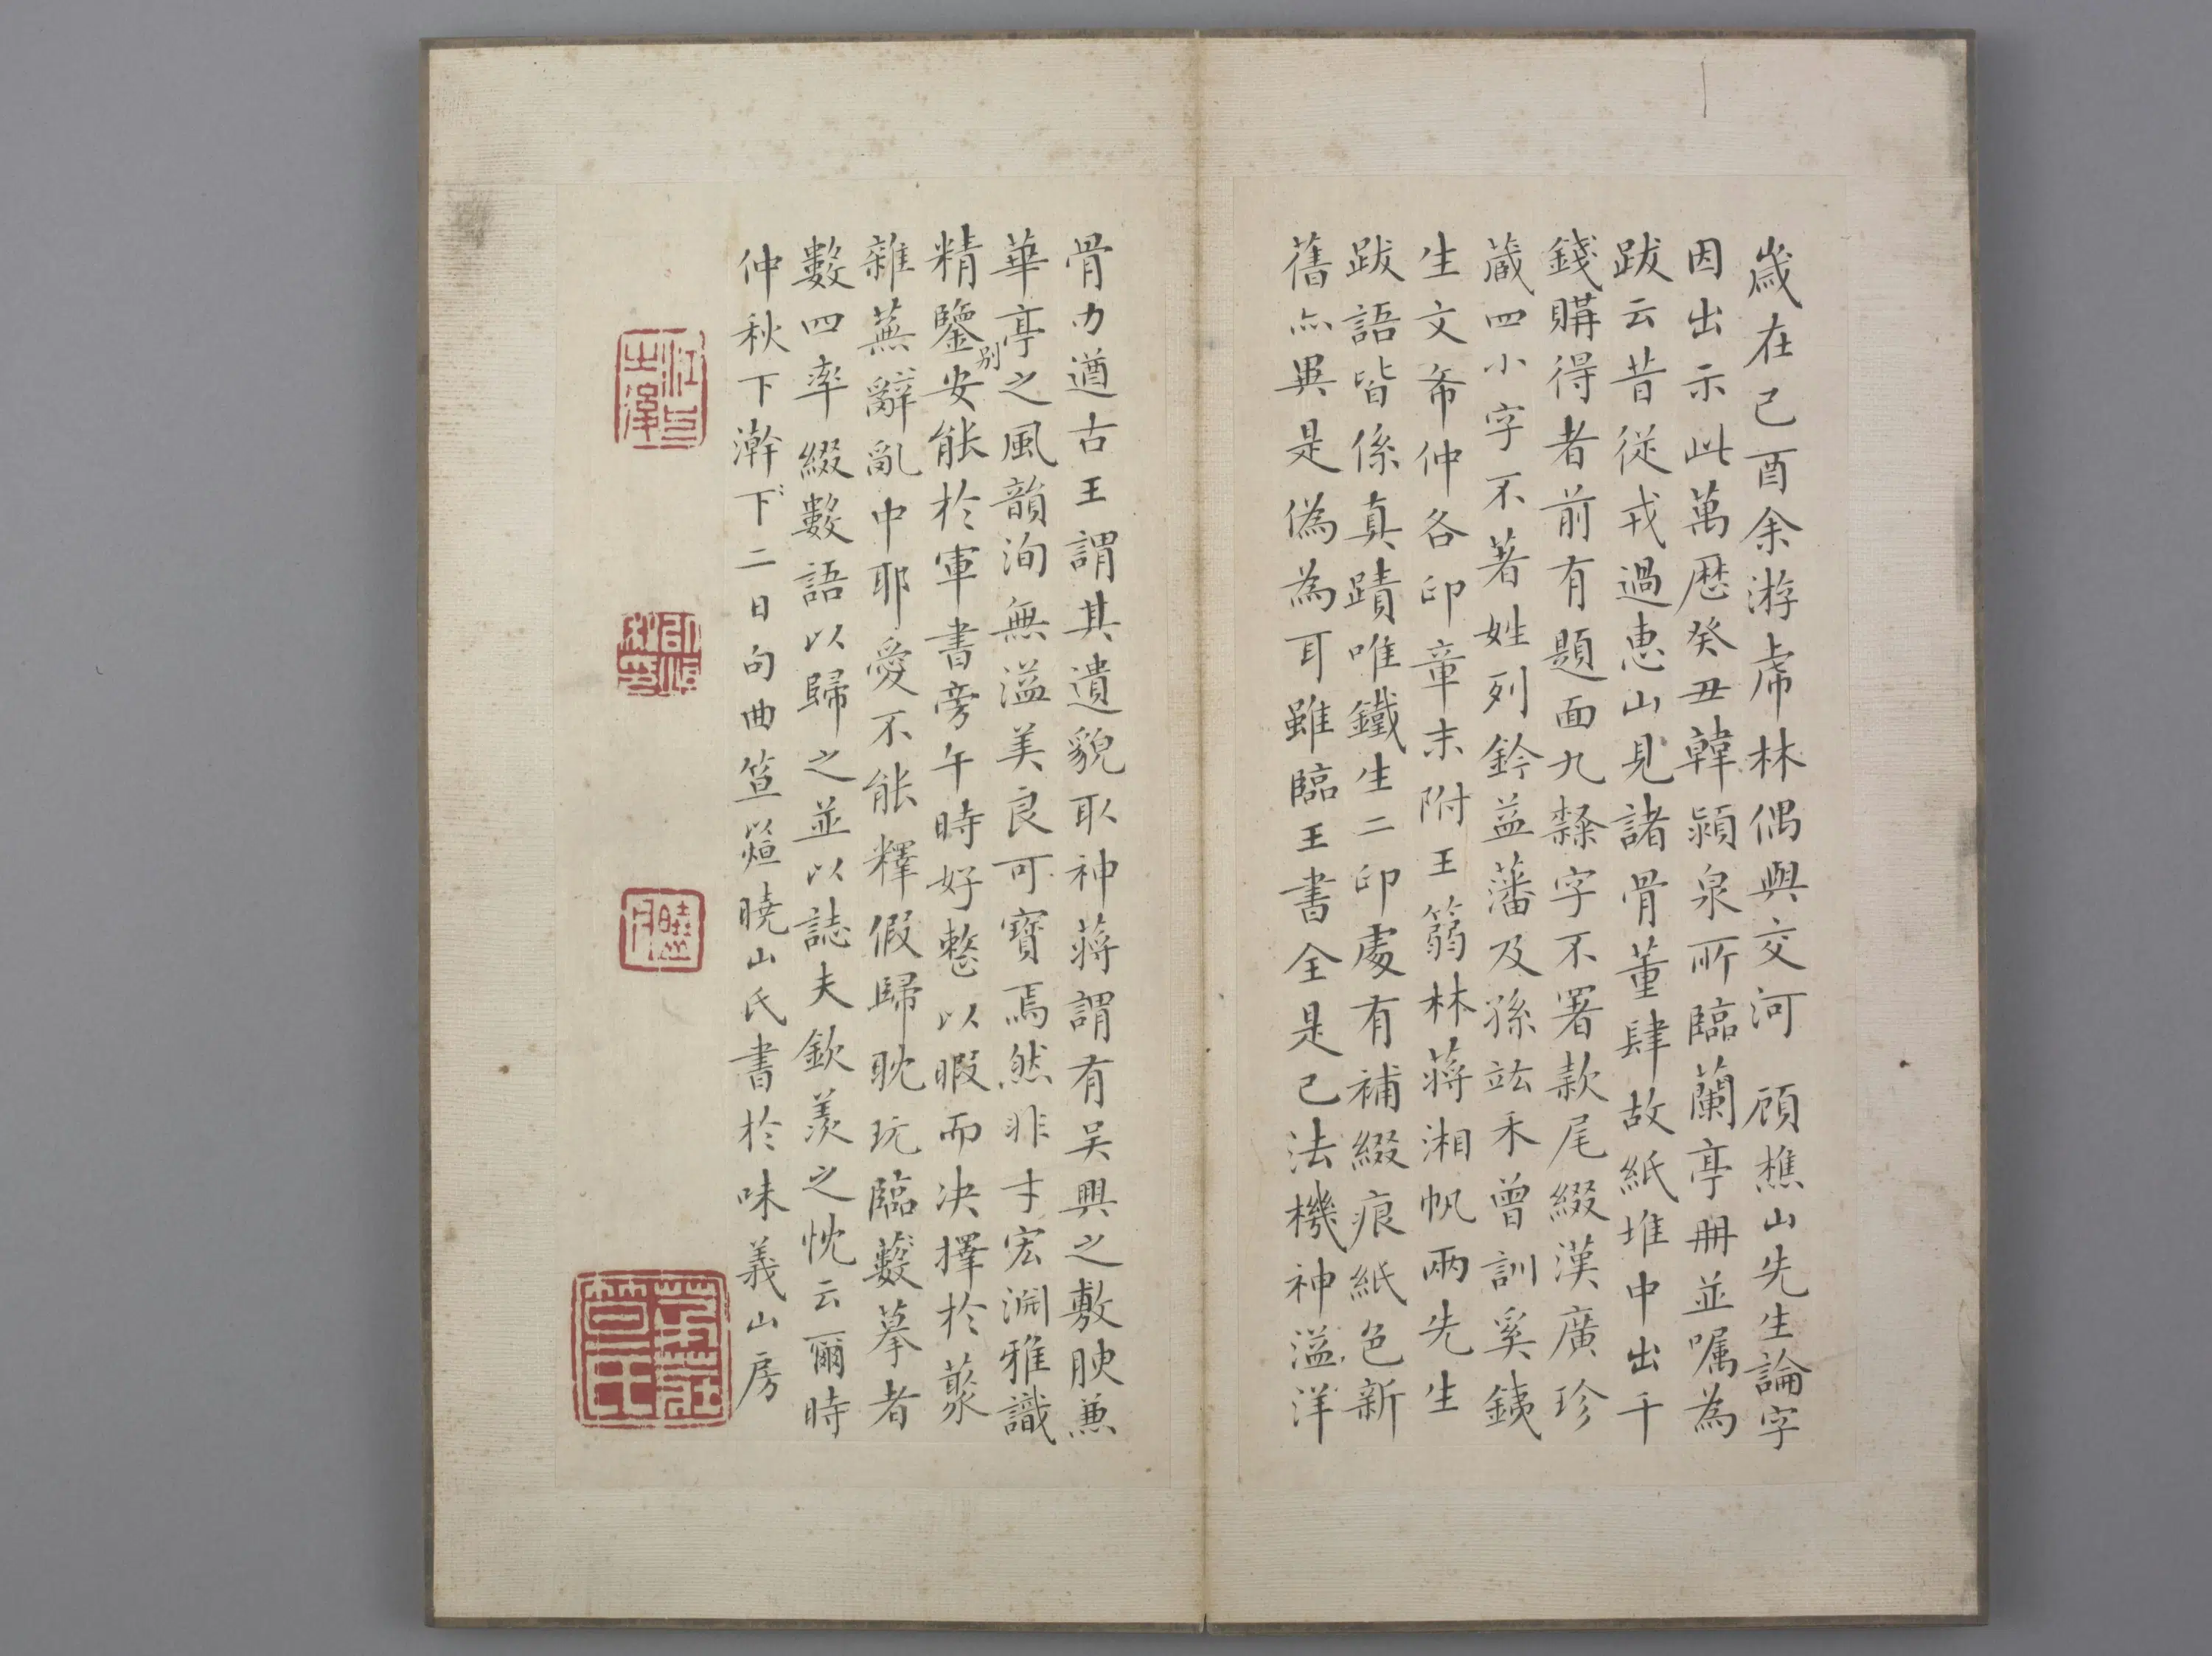 歲在己酉余游虎林偶與交河 顧樵山先生論字
因出示此萬厯癸丑韓潁泉所臨蘭亭冊並囑為
跋云昔從戎過惠山見諸骨董肆故紙堆中出千
錢購得者前有題面九隸字不署款尾綴漢廣珍
蔵四小字不著姓列鈐益藩及孫竑禾曾訓奚銕
生文㠯仲各印章末附王篛林蒋湘帆兩先生
跋語皆係真蹟唯鐵生二印處有補綴痕紙色新
舊亦異是偽為耳雖臨王書全是己法機神溢洋
骨力遒古王謂其遺貌取神蒋謂有吴興之敷腴兼
華亭之風韻洵無溢美良可寶焉然非才宏淵雅識
精鑒別安能於軍書旁午時好整以暇而决擇於蕞
雜蕪辭亂中耶愛不能釋假歸耽玩臨數摹者
數四率綴數語以歸之並以誌夫欽羡之忱云爾時
仲秋下澣下二日句曲笪 曉山氏書於味義山房